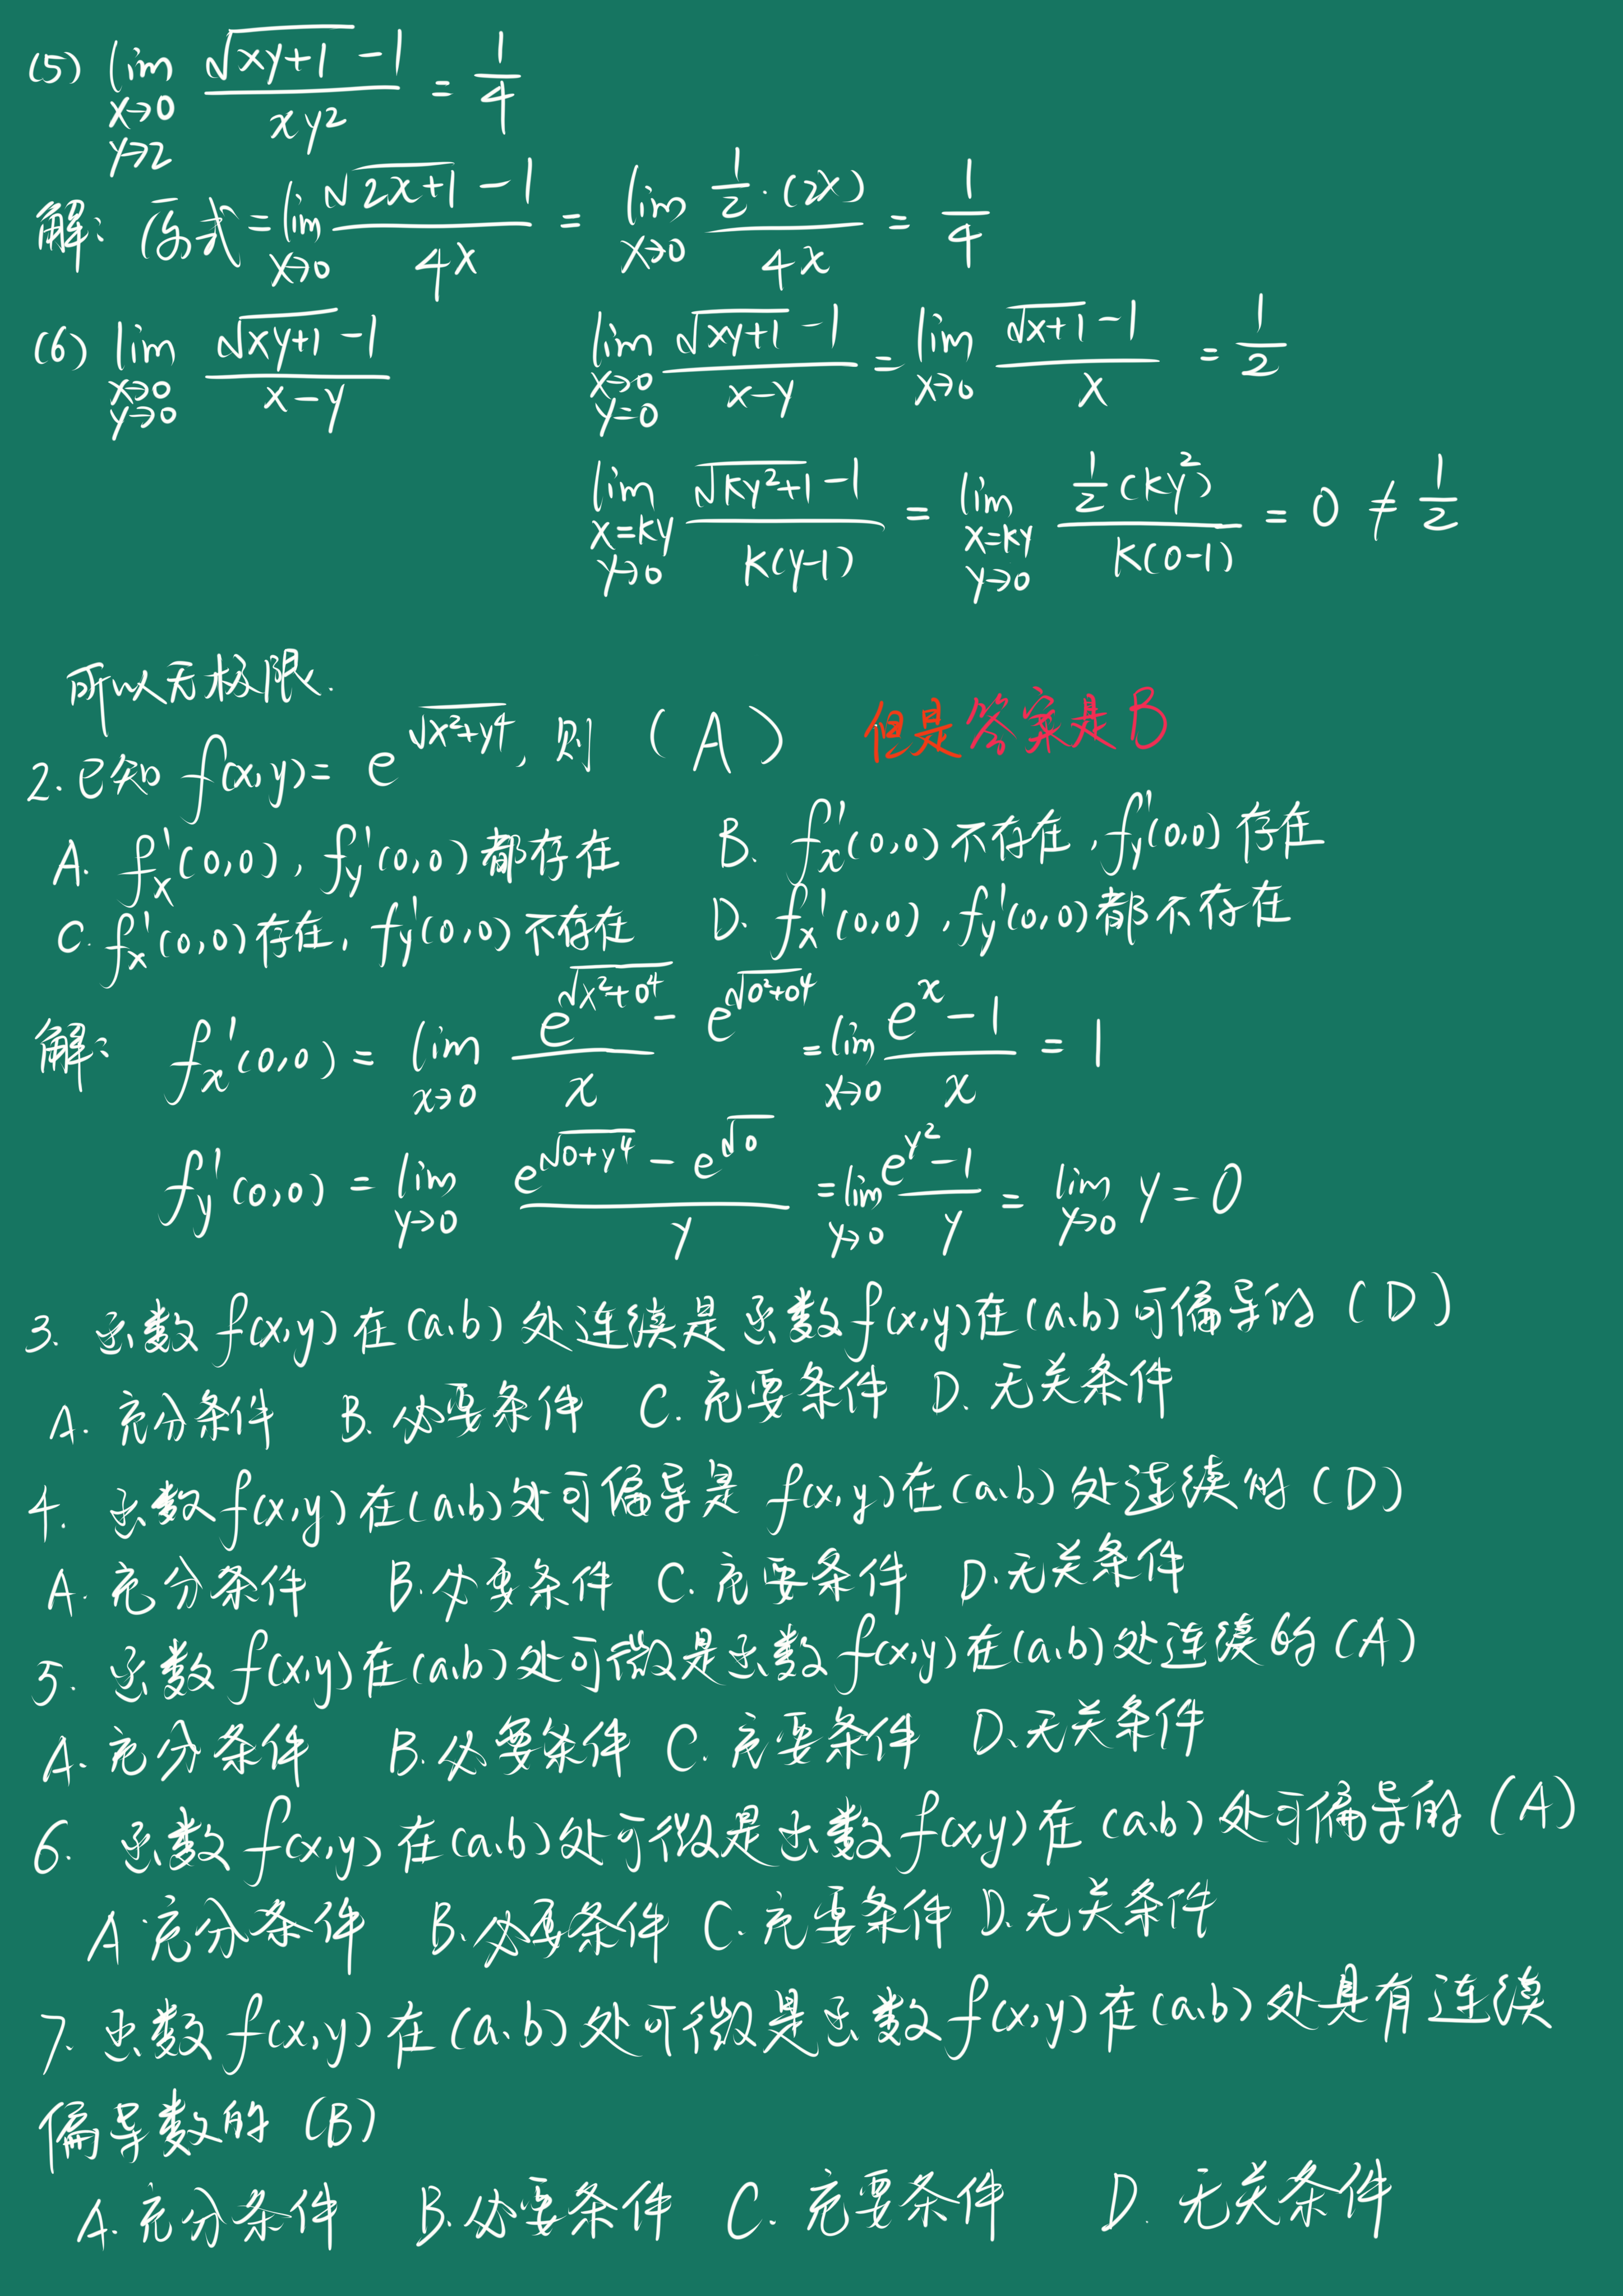 (5) lim x→0 y→2 (√(xy+1) -1)/(xy²) = 1/4
解: 原式 = lim x→0 (√(2x+1) -1)/(4x) = lim x→0 (1/2·(2x))/(4x) = 1/4
(6) lim x→0 y→0 (√(xy+1) -1)/(x-y) lim x→0 y=0 (√(xy+1) -1)/(x-y) = lim x→0 (√(x+1) -1)/x = 1/2
lim x=ky y→0 (√(ky²+1) -1)/(k(y-1)) = lim x=ky y→0 (1/2(ky²))/(k(0-1)) = 0 ≠ 1/2
所以无极限.
2.已知 f(x,y)= e^√(x²+y⁴), 则 (A) 但是答案是B
A. fx'(0,0), fy'(0,0)都存在 B. fx'(0,0)不存在, fy'(0,0)存在
C. fx'(0,0)存在, fy'(0,0)不存在 D. fx'(0,0), fy'(0,0)都不存在
解: fx'(0,0) = lim x→0 (e^√(x²+0⁴) - e^√(0²+0⁴))/x = lim x→0 (e^x -1)/x = 1
fy'(0,0) = lim y→0 (e^√(0+y⁴) - e^√0)/y = lim y→0 (e^y² -1)/y = lim y→0 y = 0
3. 函数f(x,y)在(a,b)处连续是函数f(x,y)在(a,b)可偏导的(D)
A. 充分条件 B. 必要条件 C. 充要条件 D. 无关条件
4. 函数f(x,y)在(a,b)处可偏导是 f(x,y)在(a,b)处连续的(D)
A. 充分条件 B.必要条件 C. 充要条件 D.无关条件
5. 函数f(x,y)在(a,b)处可微是函数f(x,y)在(a,b)处连续的(A)
A. 充分条件 B.必要条件 C. 充要条件 D.无关条件
6. 函数f(x,y)在(a,b)处可微是函数f(x,y)在(a,b)处可偏导的(A)
A.充分条件 B.必要条件 C.充要条件 D.无关条件
7. 函数f(x,y)在(a,b)处可微是函数f(x,y)在(a,b)处具有连续
偏导数的(B)
A.充分条件 B.必要条件 C. 充要条件 D. 无关条件